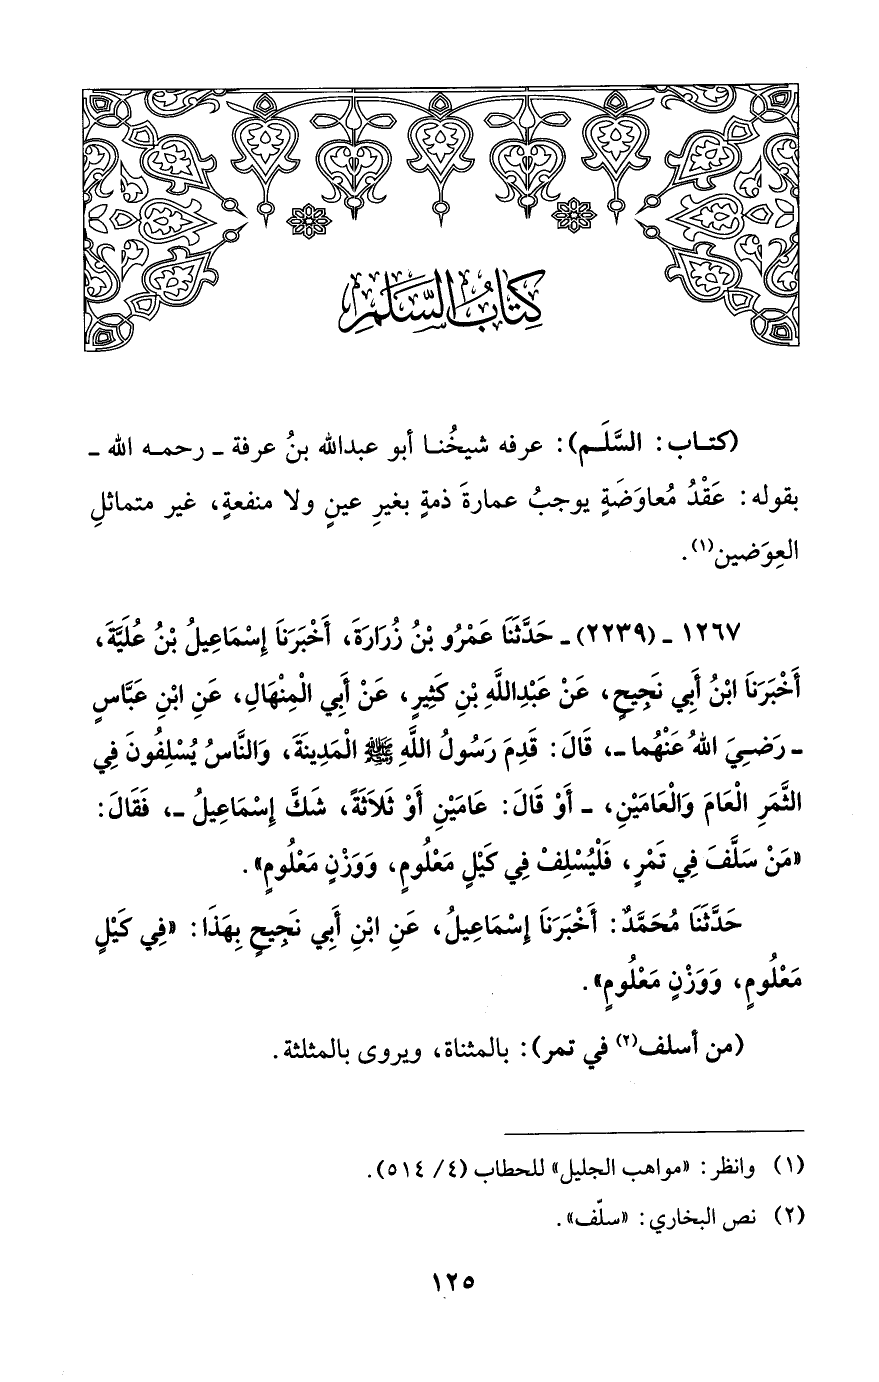 كِتَابُ السَّلَمِ
(كتــاب: السَّلَــم): عرفه شيخُنــا أبو عبدالله بنُ عرفة ـ رحمــه الله ـ
بقوله: عَقْدُ مُعاوَضَةٍ يوجبُ عمارةَ ذمةٍ بغيرِ عينٍ ولا منفعةٍ، غير متماثلِ
العِوَضين(١).
١٢٦٧ ـ (٢٢٣٩) ـ حَدَّثَنَا عَمْرُو بْنُ زُرَارَةَ، أَخْبَرَنَا إِسْمَاعِيلُ بْنُ عُلَيَّةَ،
أَخْبَرَنَا ابْنُ أَبِي نَجِيحٍ، عَنْ عَبْدِاللَّهِ بْنِ كَثِيرٍ، عَنْ أَبِي الْمِنْهَالِ، عَنِ ابْنِ عَبَّاسٍ
ـ رَضِيَ اللهُ عَنْهُما ـ، قَالَ: قَدِمَ رَسُولُ اللَّهِ ﷺ الْمَدِينَةَ، وَالنَّاسُ يُسْلِفُونَ فِي
الثَّمَرِ الْعَامَ وَالْعَامَيْنِ، ـ أَوْ قَالَ: عَامَيْنِ أَوْ ثَلَاثَةً، شَكَّ إِسْمَاعِيلُ ـ، فَقَالَ:
«مَنْ سَلَّفَ فِي تَمْرٍ، فَلْيُسْلِفْ فِي كَيْلٍ مَعْلُومٍ، وَوَزْنٍ مَعْلُومٍ».
حَدَّثَنَا مُحَمَّدٌ: أَخْبَرَنَا إِسْمَاعِيلُ، عَنِ ابْنِ أَبِي نَجِيحٍ بِهَذَا: «فِي كَيْلٍ
مَعْلُومٍ، وَوَزْنٍ مَعْلُومٍ».
(من أسلف(٢) في تمر): بالمثناة، ويروى بالمثلثة.
(١) وانظر: «مواهب الجليل» للحطاب (٤/ ٥١٤).
(٢) نص البخاري: «سلّف».
١٢٥